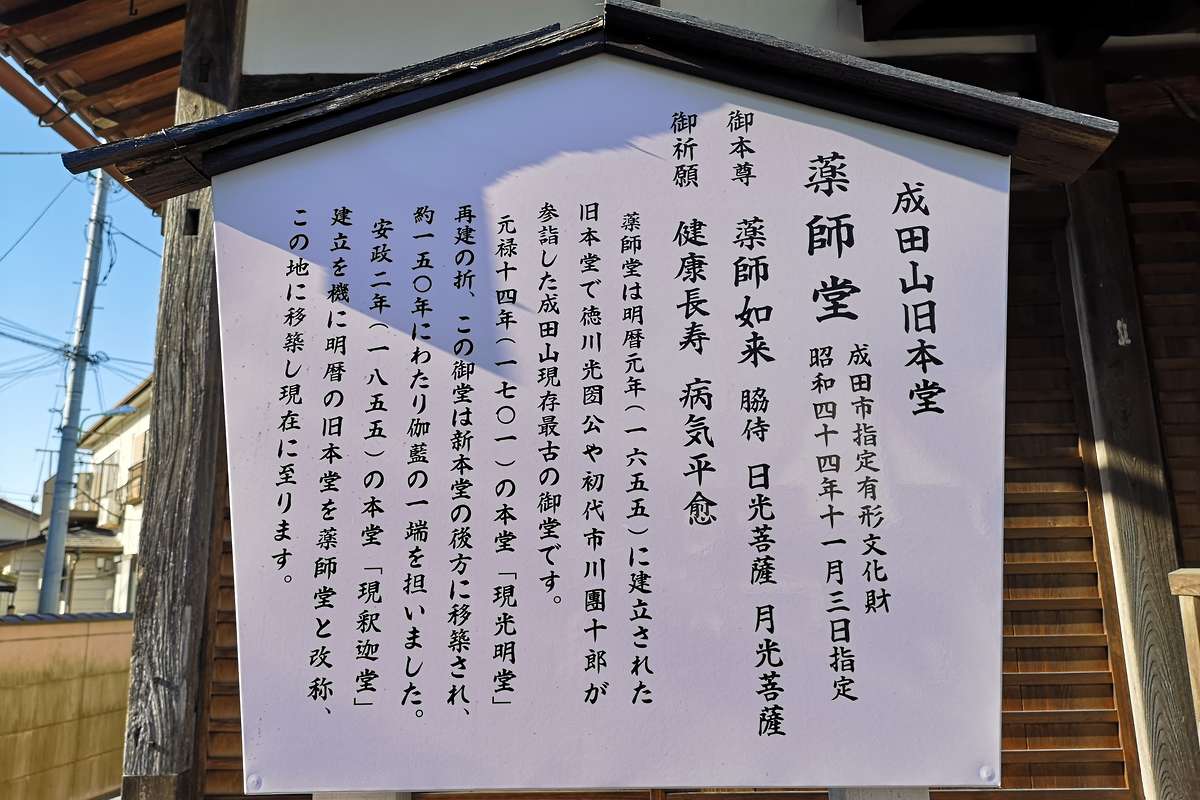 成田山旧本堂
薬師堂
成田市指定有形文化財
昭和四十四年十一月三日指定
御本尊 薬師如来 脇侍 日光菩薩 月光菩薩
御祈願 健康長寿 病気平愈
薬師堂は明暦元年(一六五五)に建立された
旧本堂で徳川光圀公や初代市川團十郎が
参詣した成田山現存最古の御堂です。
元禄十四年(一七〇一)の本堂「現光明堂」
再建の折、この御堂は新本堂の後方に移築され、
約一五〇年にわたり伽藍の一端を担いました。
安政二年(一八五五)の本堂「現釈迦堂」
建立を機に明暦の旧本堂を薬師堂と改称、
この地に移築し現在に至ります。